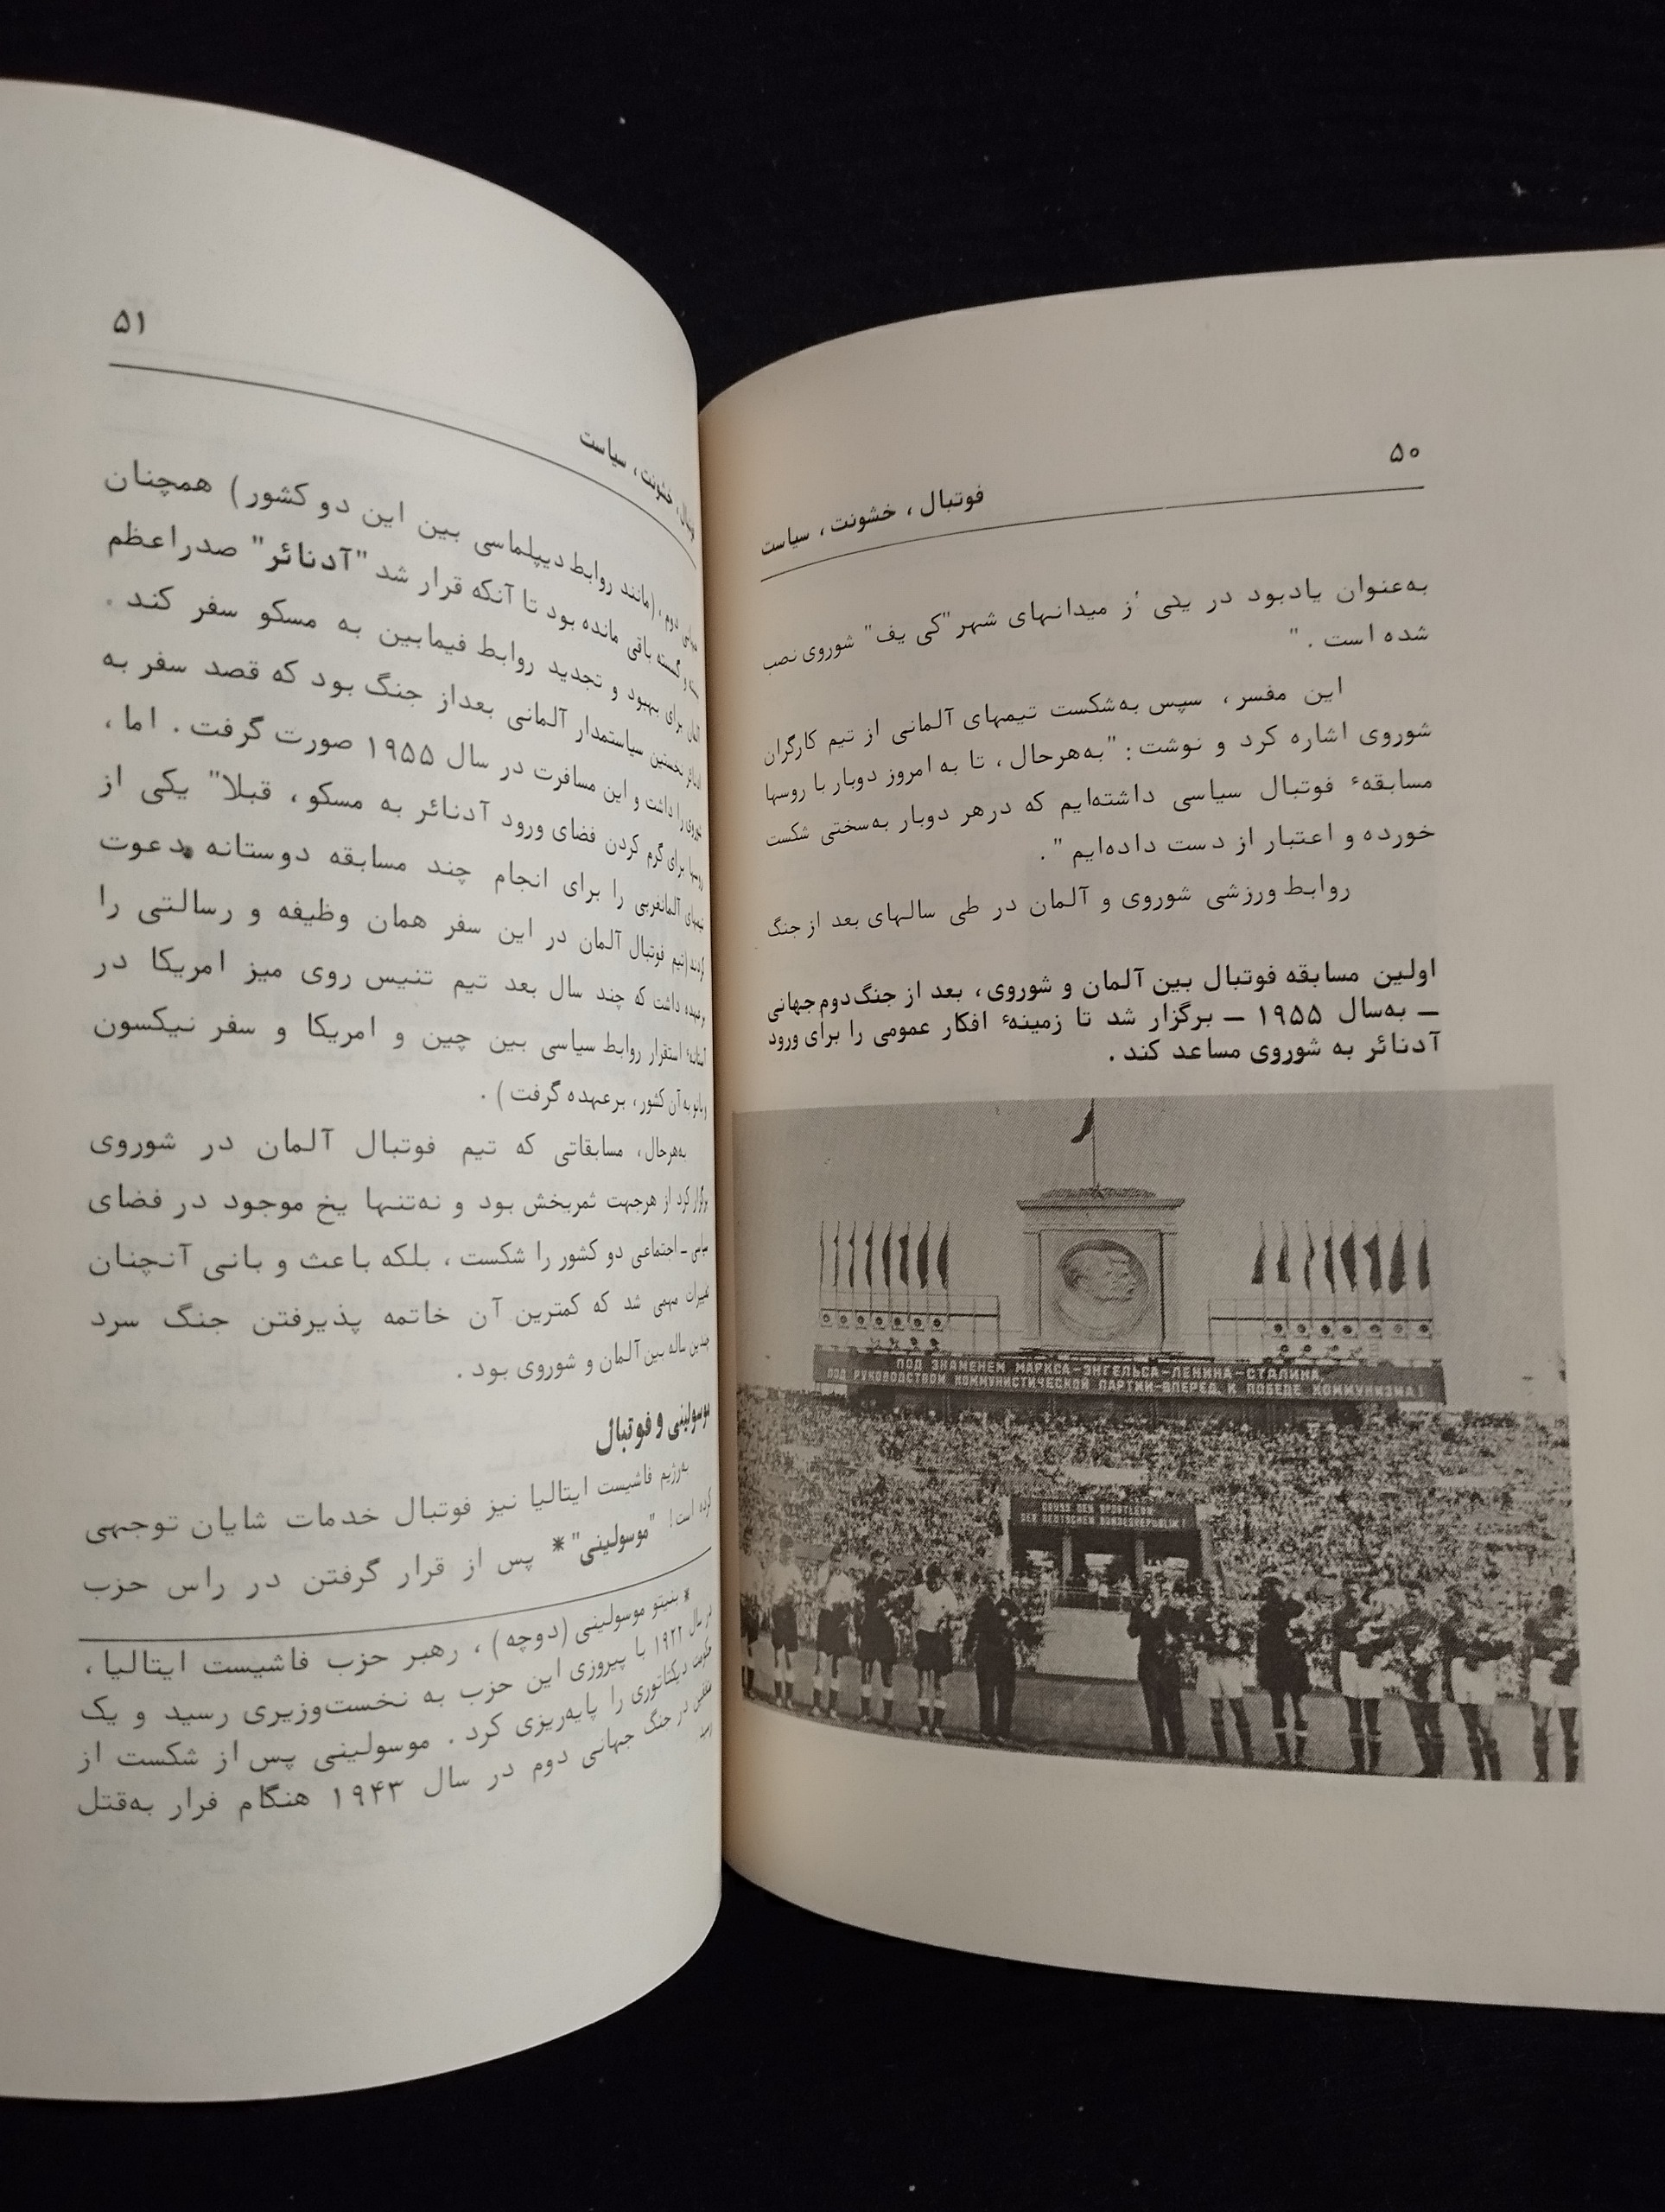 ۵۰
فوتبال، خشونت، سیاست
به‌عنوان یادبود در یکی از میدانهای شهر "کی یف" شوروی نصب
شده است ."
این مفسر، سپس به‌شکست تیمهای آلمانی از تیم کارگران
شوروی اشاره کرد و نوشت: "به‌هرحال، تا به امروز دوبار با روسها
مسابقهٔ فوتبال سیاسی داشته‌ایم که درهر دوبار به‌سختی شکست
خورده و اعتبار از دست داده‌ایم ".
روابط ورزشی شوروی و آلمان در طی سالهای بعد از جنگ
اولین مسابقه فوتبال بین آلمان و شوروی، بعد از جنگ‌دوم‌جهانی
ــ به‌سال ۱۹۵۵ ــ برگزار شد تا زمینهٔ افکار عمومی را برای ورود
آدنائر به شوروی مساعد کند .
ПОД ЗНАМЕНЕМ МАРКСА-ЭНГЕЛЬСА-ЛЕНИНА-СТАЛИНА
ПОД РУКОВОДСТВОМ КОММУНИСТИЧЕСКОЙ ПАРТИИ-ВПЕРЕД, К ПОБЕДЕ КОММУНИЗМА!
DER DEUTSCHEN BUNDESREPUBLIK!
۵۱
فوتبال، خشونت، سیاست
دوم، (مانند روابط دیپلماسی بین این دو کشور) همچنان
و گسسته باقی مانده بود تا آنکه قرار شد "آدنائر" صدراعظم
آلمان برای بهبود و تجدید روابط فیمابین به مسکو سفر کند .
آدنائر نخستین سیاستمدار آلمانی بعداز جنگ بود که قصد سفر به
شوروی را داشت و این مسافرت در سال ۱۹۵۵ صورت گرفت. اما،
روسها برای گرم کردن فضای ورود آدنائر به مسکو، قبلا" یکی از
تیمهای آلمانغربی را برای انجام چند مسابقه دوستانه دعوت
کردند (تیم فوتبال آلمان در این سفر همان وظیفه و رسالتی را
برعهده داشت که چند سال بعد تیم تنیس روی میز امریکا در
آستانهٔ استقرار روابط سیاسی بین چین و امریکا و سفر نیکسون
به آن کشور، برعهده گرفت) .
به‌هرحال، مسابقاتی که تیم فوتبال آلمان در شوروی
برگزار کرد از هرجهت ثمربخش بود و نه‌تنها یخ موجود در فضای
سیاسی ـ اجتماعی دو کشور را شکست، بلکه باعث و بانی آنچنان
تغییرات مهمی شد که کمترین آن خاتمه پذیرفتن جنگ سرد
چندین ساله بین آلمان و شوروی بود .
موسولینی و فوتبال
به‌رژیم فاشیست ایتالیا نیز فوتبال خدمات شایان توجهی
کرده است! "موسولینی"* پس از قرار گرفتن در راس حزب
* بنیتو موسولینی (دوچه)، رهبر حزب فاشیست ایتالیا،
در سال ۱۹۲۲ با پیروزی این حزب به نخست‌وزیری رسید و یک
حکومت دیکتاتوری را پایه‌ریزی کرد. موسولینی پس از شکست از
متفقین در جنگ جهانی دوم در سال ۱۹۴۳ هنگام فرار به‌قتل
رسید